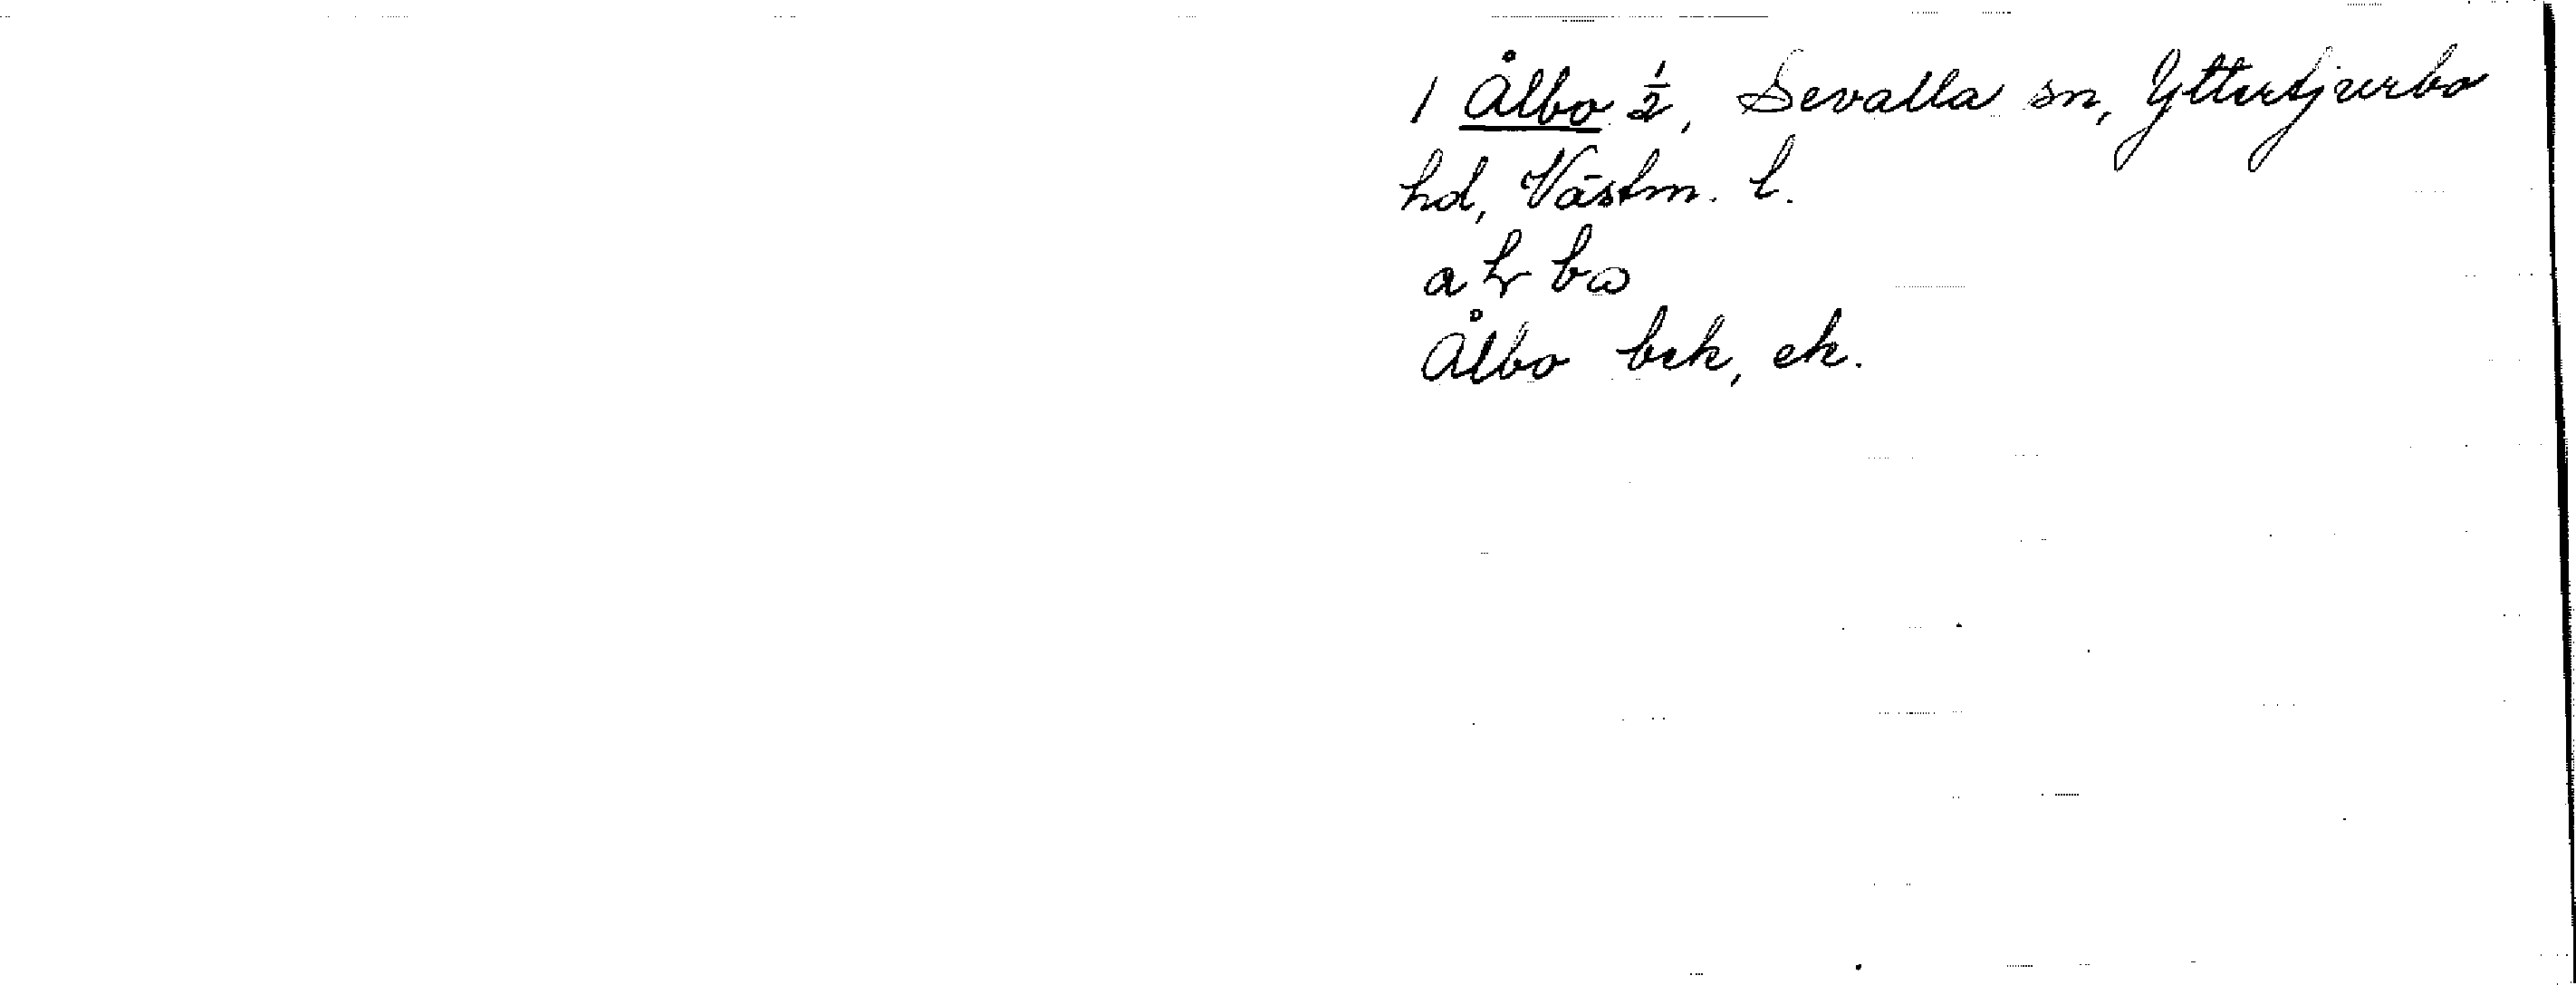 1 Ålbo ½, Sevalla sn, Yttertjurbo
hd, Västm. l.
Ålbo bek, ek.